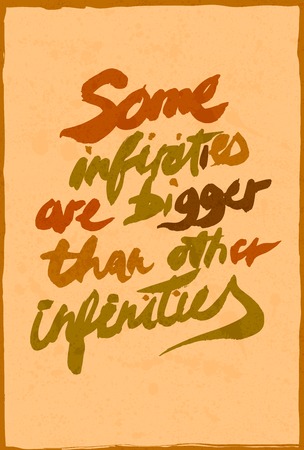 Some
infinities
are bigger
than other
infinities